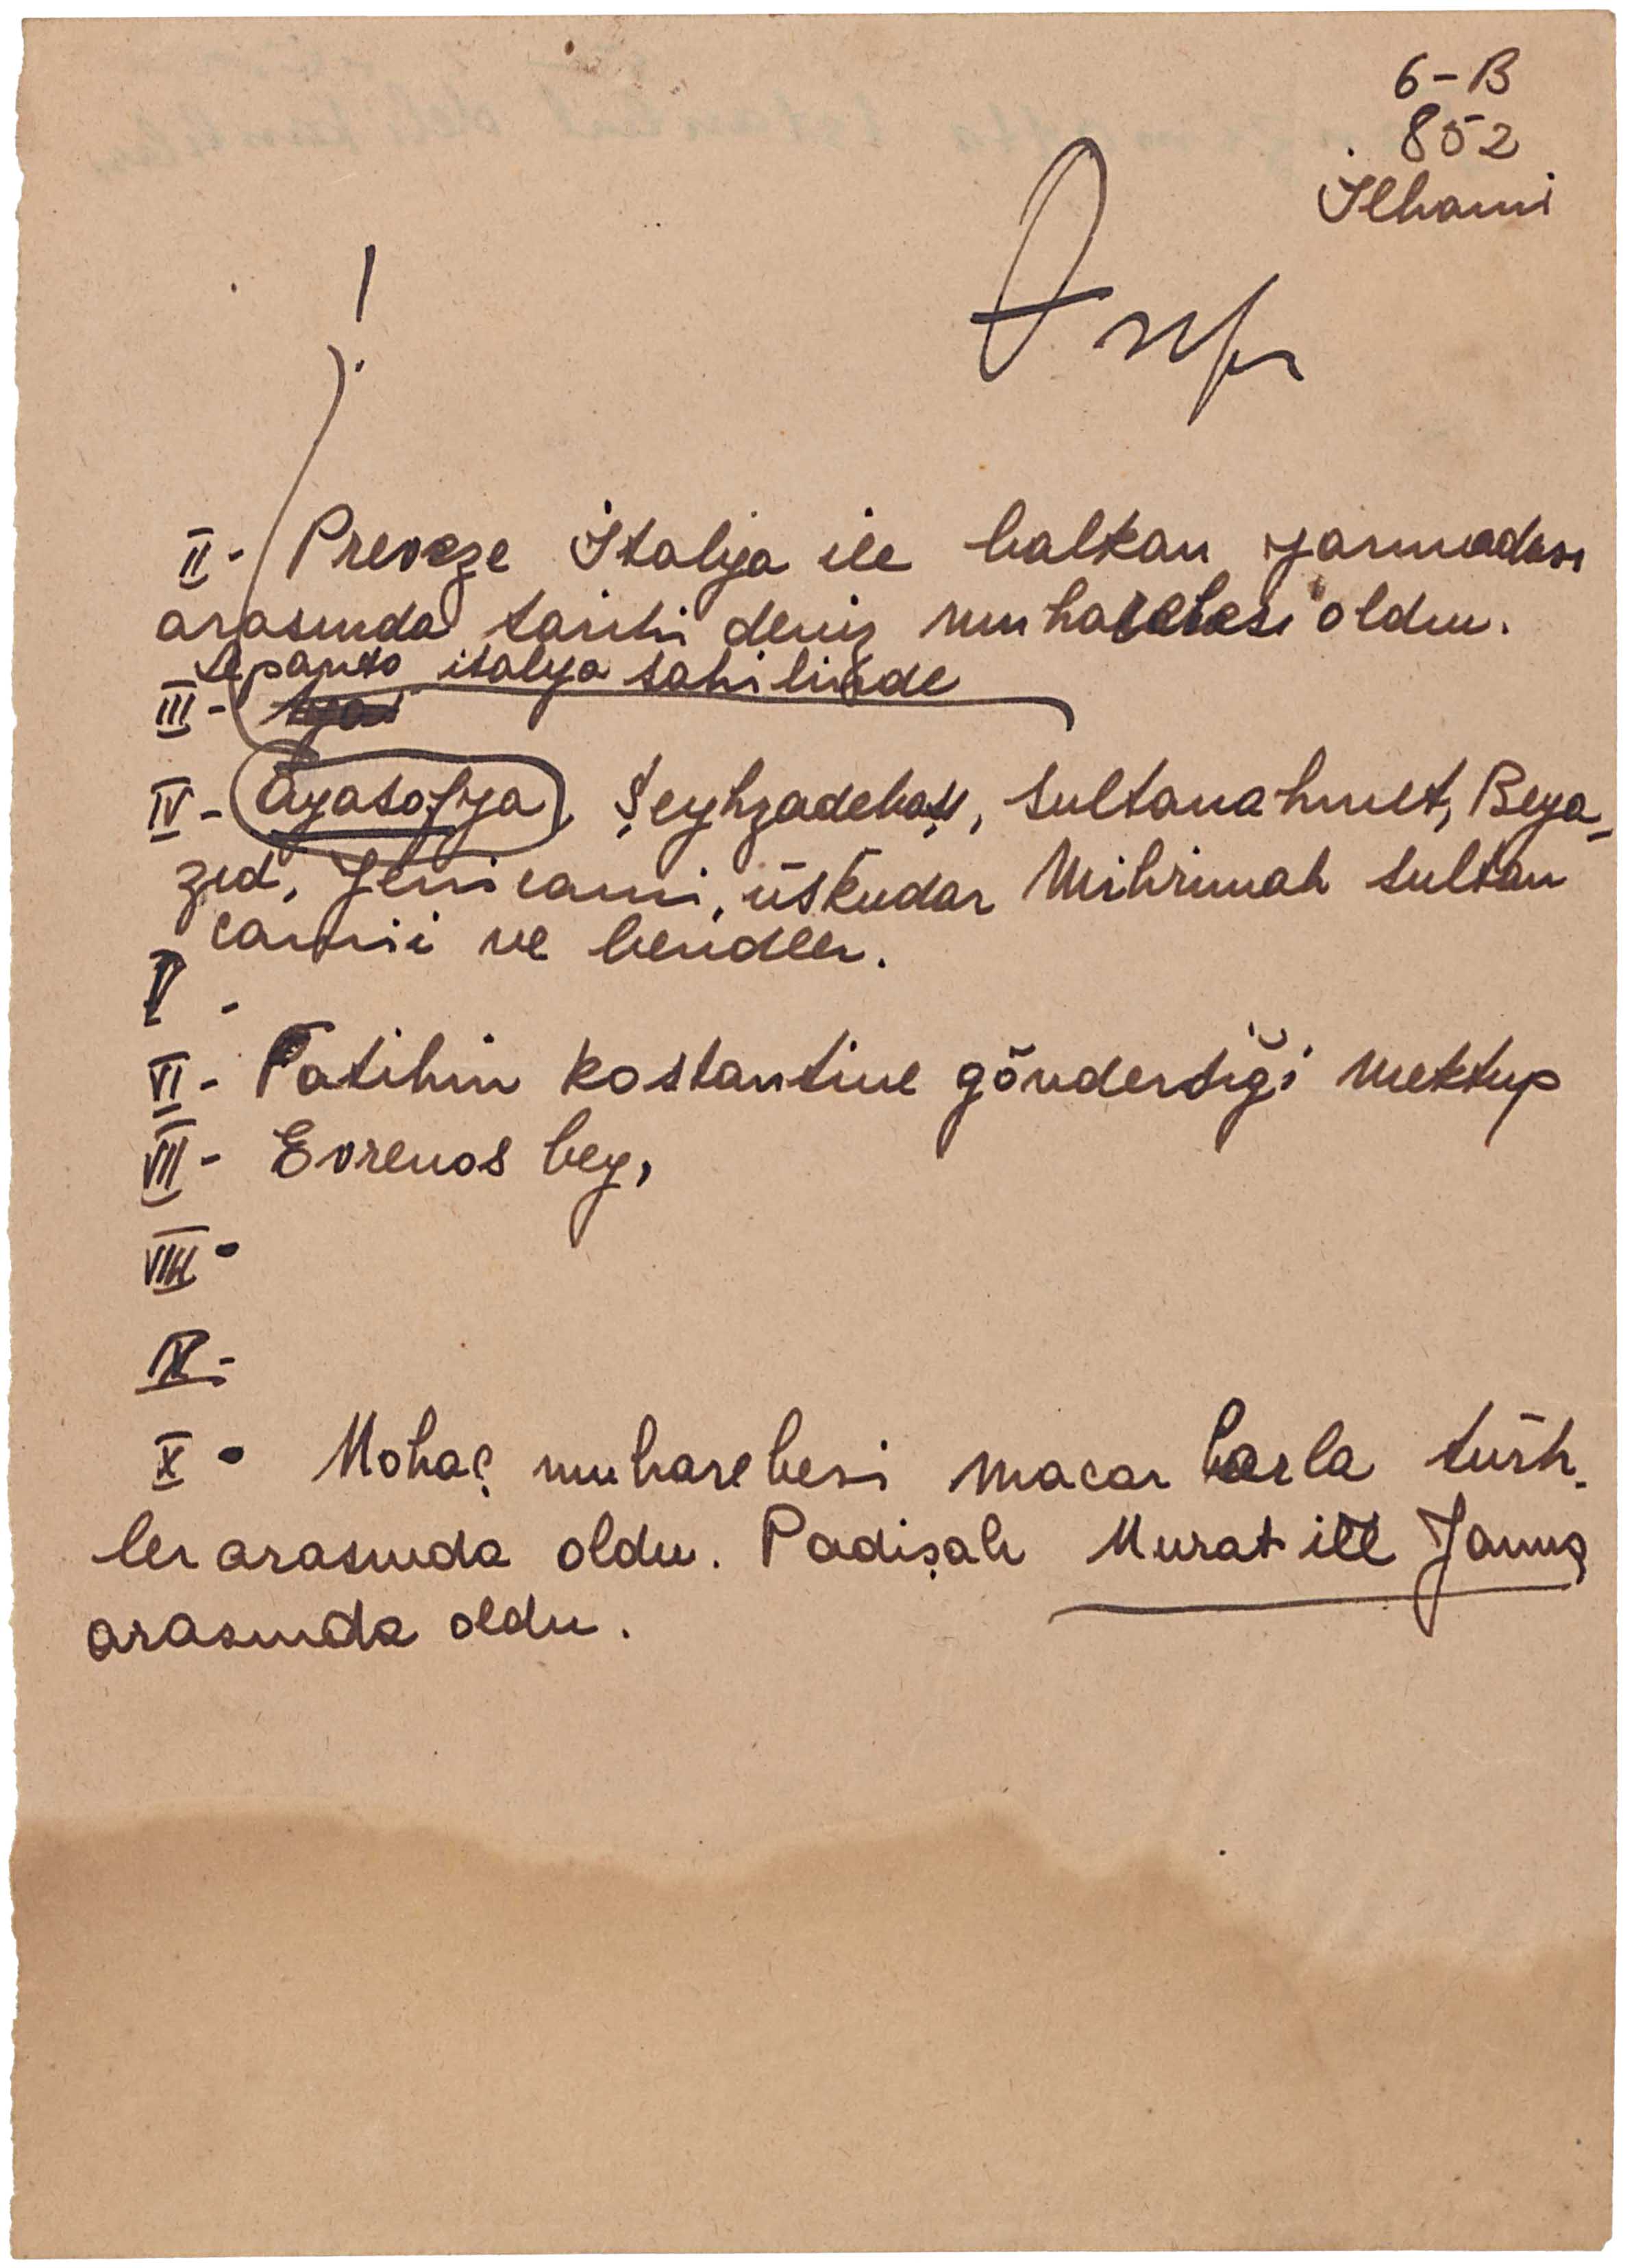 6-B
852
İlhami
!
II- Preveze İtalya ile balkan yarımadası
arasında tarihi deniz muharebesi oldu.
Lepanto italya sahilinde
III-
IV- Ayasofya, Şeyhzadebaşı, Sultanahmet, Beya-
zıd, Yenicami, üsküdar Mihrimah sultan
camii ve bendler.
V -
VI- Fatihin kostantine gönderdiği mektup
VII- Evrenos bey,
VIII-
IX-
X- Mohaç muharebesi macar larla türk-
ler arasında oldu. Padişah Murat ile Yanuş
arasında oldu.